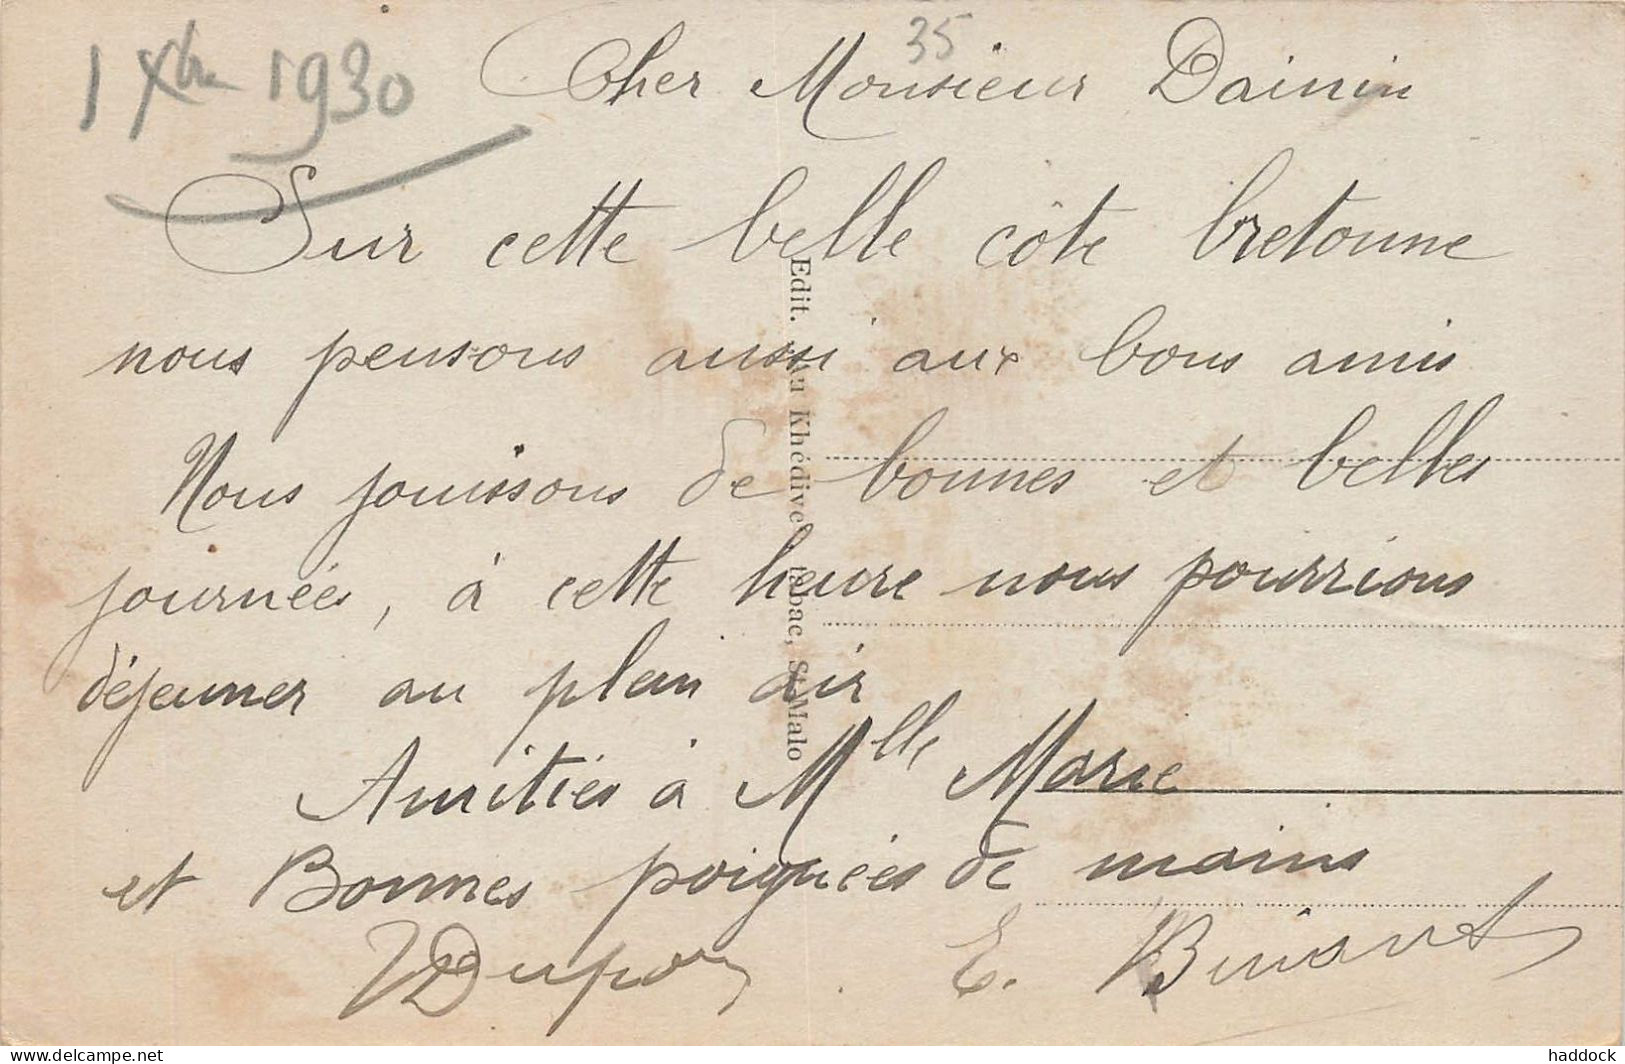 1 Xbre 1930
35
Cher Monsieur Dainin
Sur cette belle côte bretonne
nous pensons aussi aux bons amis
Nous jouissons de bonnes et belles
journées, à cette heure nous pourrions
déjeuner au plein air
Amitiés à Mlle Marie
et Bonnes poignées de mains
E.
Edit. Au Khédive tabac, St-Malo
www.delcampe.net
haddock